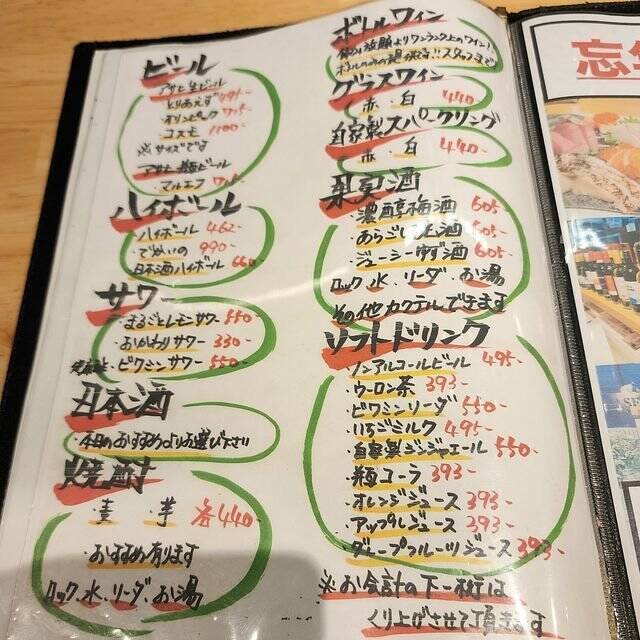 ビール
アサヒ生ビール
とりあえず 495-
オリンピック 715-
コスモ 1100-
※サイズです
アサヒ 瓶ビール
マルエフ
ハイボール
ハイボール 462-
でかいの 990-
日本酒ハイボール
サワー
・まるごとレモンサワー 550-
・おかわりサワー 330-
・ビワミンサワー 550-
日本酒
・本日のおすすめよりお選び下さい
焼酎
・麦 ・芋 各440-
・おすすめ有ります
ロック、水、ソーダ、お湯
ボトルワイン
グラスワイン
赤・白 440-
自家製スパークリング
赤・白 440-
果実酒
・濃醇梅酒 605
・あらごし 酒 605-
・ジューシーゆず酒 605-
ロック、水、ソーダ、お湯
その他カクテルできます
ソフトドリンク
・ノンアルコールビール 495-
・ウーロン茶 393-
・ビワミンソーダ 550-
・いちごミルク 495-
・自家製ジンジャエール 550-
・瓶コーラ 393-
・オレンジジュース 393-
・アップルジュース 393-
・グレープフルーツジュース 393-
※お会計の下一桁は
くり上げさせて頂きます
忘年